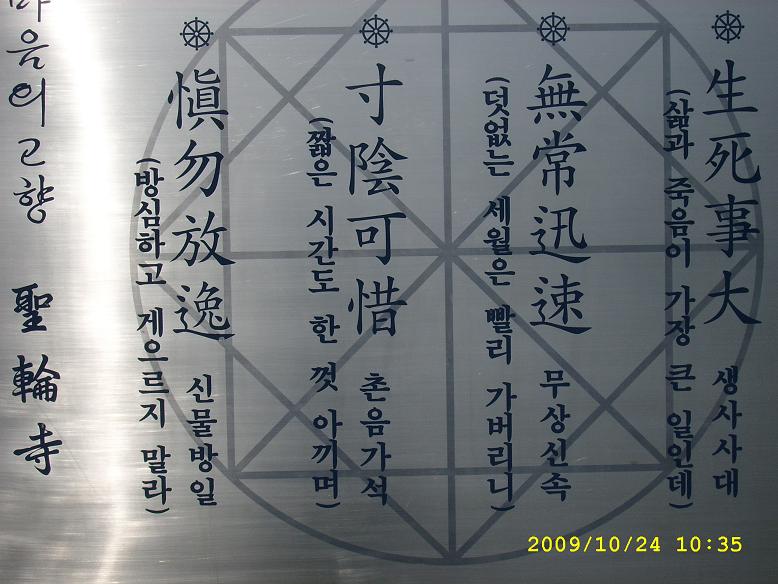 生死事大 생사사대
(삶과 죽음이 가장 큰 일인데)
無常迅速 무상신속
(덧없는 세월은 빨리 가버리니)
寸陰可惜 촌음가석
(짧은 시간도 한 껏 아끼며)
愼勿放逸 신물방일
(방심하고 게으르지 말라)
마음의고향 聖輪寺
2009/10/24 10:35